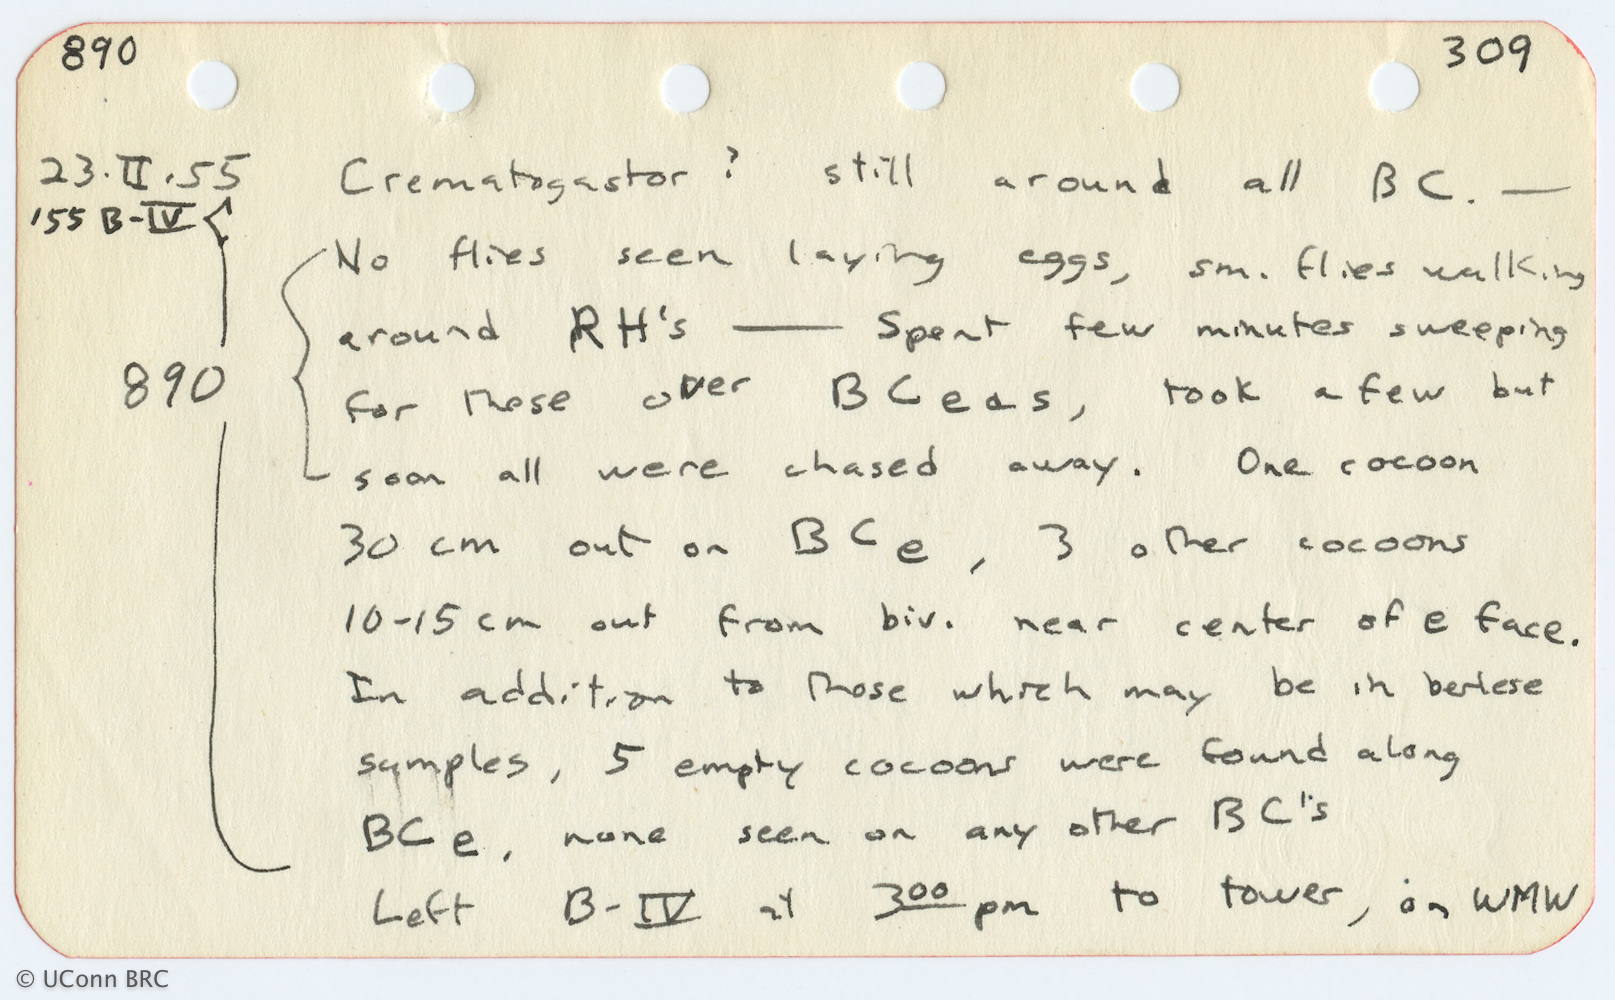 890 309
23.II.55 Crematogastor? still around all BC. —
'55 B-IV
No flies seen laying eggs, sm. flies walking
around RH's — Spent few minutes sweeping
890 for these over BC e a s, took a few but
soon all were chased away. One cocoon
30 cm out on BC e, 3 other cocoons
10-15 cm out from biv. near center of e face.
In addition to those which may be in berlese
samples, 5 empty cocoons were found along
BC e, none seen on any other BC's
Left B-IV at 3 00 pm to tower, on WMW
© UConn BRC